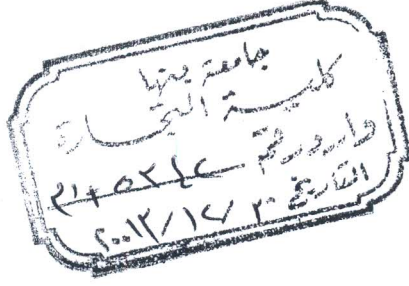 جامعة بنها
كلية التجارة
وارد رقم
التاريخ ٣٠/١٢/٢٠١٣